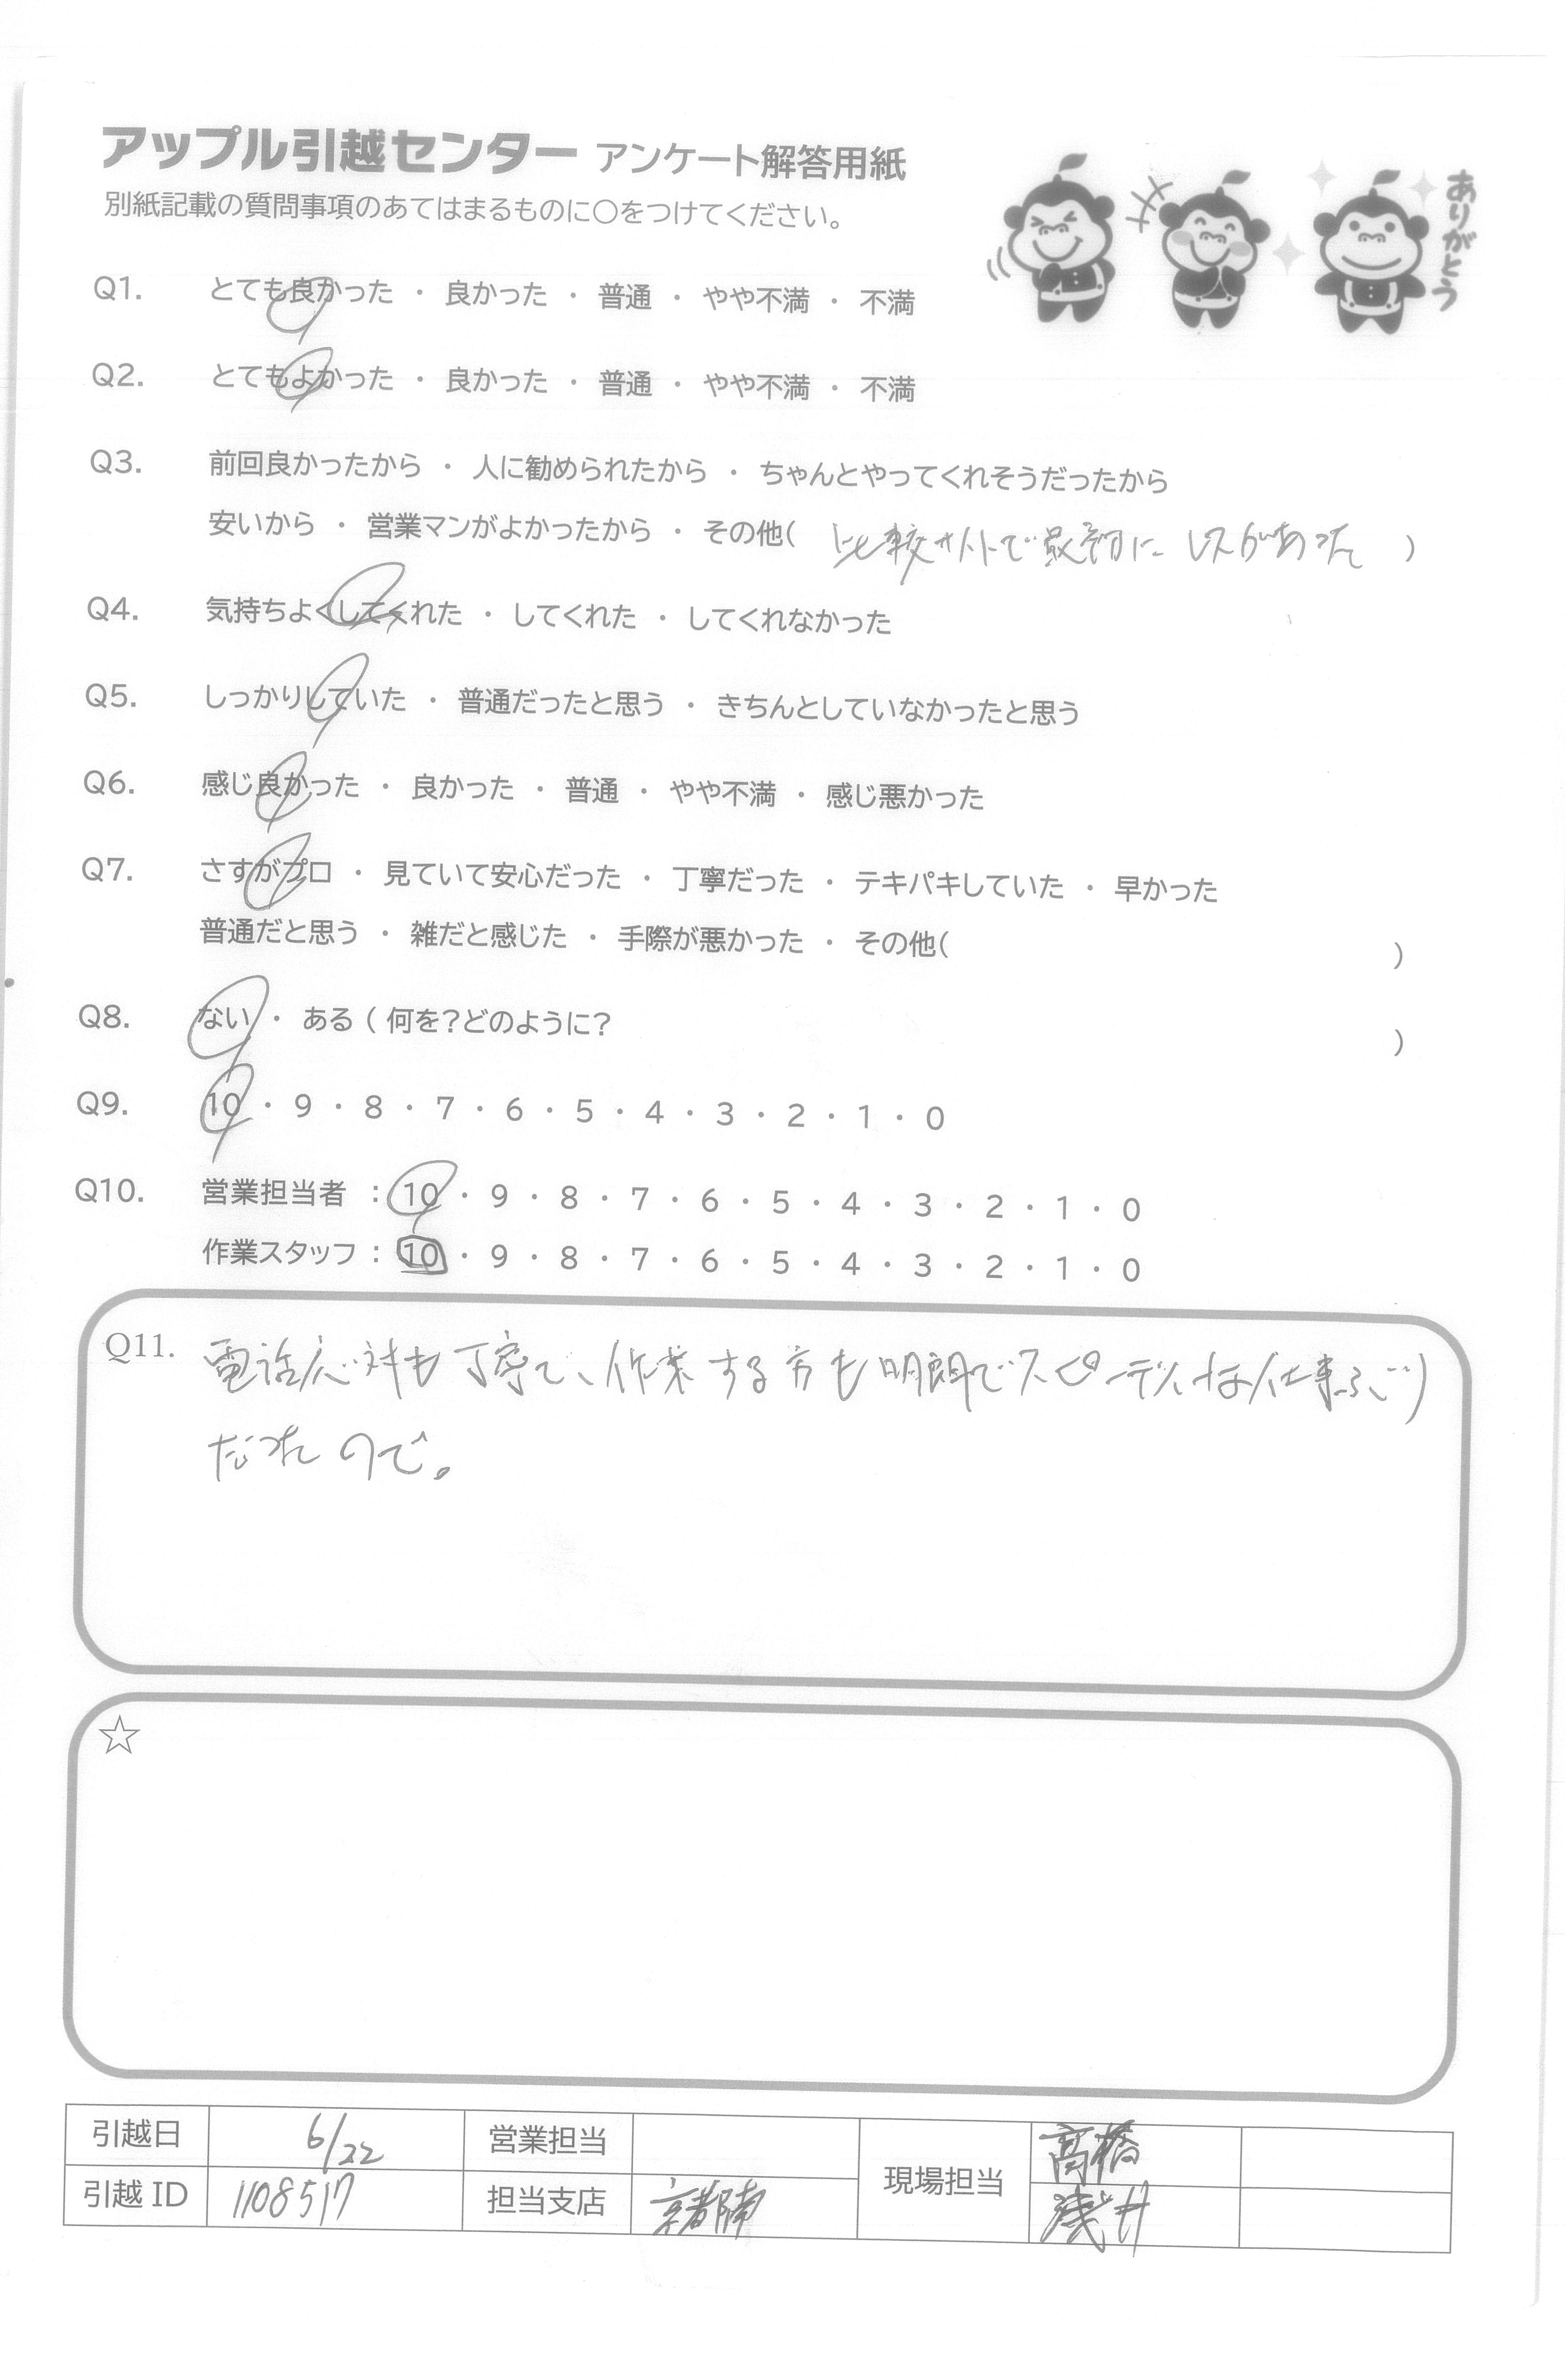 アップル引越センター アンケート解答用紙
別紙記載の質問事項のあてはまるものに○をつけてください。
ありがとう
Q1. とても良かった ・ 良かった ・ 普通 ・ やや不満 ・ 不満
Q2. とてもよかった ・ 良かった ・ 普通 ・ やや不満 ・ 不満
Q3. 前回良かったから ・ 人に勧められたから ・ ちゃんとやってくれそうだったから
安いから ・ 営業マンがよかったから ・ その他( 比較サイトで最初に レスがあった )
Q4. 気持ちよくしてくれた ・ してくれた ・ してくれなかった
Q5. しっかりしていた ・ 普通だったと思う ・ きちんとしていなかったと思う
Q6. 感じ良かった ・ 良かった ・ 普通 ・ やや不満 ・ 感じ悪かった
Q7. さすがプロ ・ 見ていて安心だった ・ 丁寧だった ・ テキパキしていた ・ 早かった
普通だと思う ・ 雑だと感じた ・ 手際が悪かった ・ その他( )
Q8. ない ・ ある ( 何を?どのように? )
Q9. 10 ・ 9 ・ 8 ・ 7 ・ 6 ・ 5 ・ 4 ・ 3 ・ 2 ・ 1 ・ 0
Q10. 営業担当者 : 10 ・ 9 ・ 8 ・ 7 ・ 6 ・ 5 ・ 4 ・ 3 ・ 2 ・ 1 ・ 0
作業スタッフ : 10 ・ 9 ・ 8 ・ 7 ・ 6 ・ 5 ・ 4 ・ 3 ・ 2 ・ 1 ・ 0
Q11. 電話応対も丁寧で、作業する方も明朗でスピーディな仕事ぶり
だったので。
☆
引越日 6/22 営業担当 現場担当 高橋
引越ID 1108517 担当支店 京都南 浅井